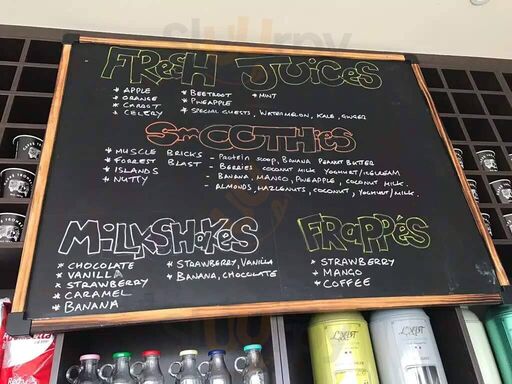 FRESH JUICES
* APPLE * BEETROOT * MINT
* ORANGE * PINEAPPLE
* CARROT * SPECIAL GUESTS, WATERMELON, KALE, GINGER
* CELERY
SMOOTHIES
* MUSCLE BRICKS - PROTEIN SCOOP, BANANA PEANUT BUTTER
* FORREST BLAST - BERRIES COCONUT MILK YOGHURT/ICECREAM
* ISLANDS - BANANA, MANGO, PINEAPPLE, COCONUT MILK.
* NUTTY - ALMONDS, HAZLENUTS, COCONUT, YOGHURT/MILK.
MILKSHAKES
* CHOCOLATE * STRAWBERRY, VANILLA
* VANILLA * BANANA, CHOCOLATE
* STRAWBERRY
* CARAMEL
* BANANA
FRAPPÉS
* STRAWBERRY
* MANGO
* COFFEE